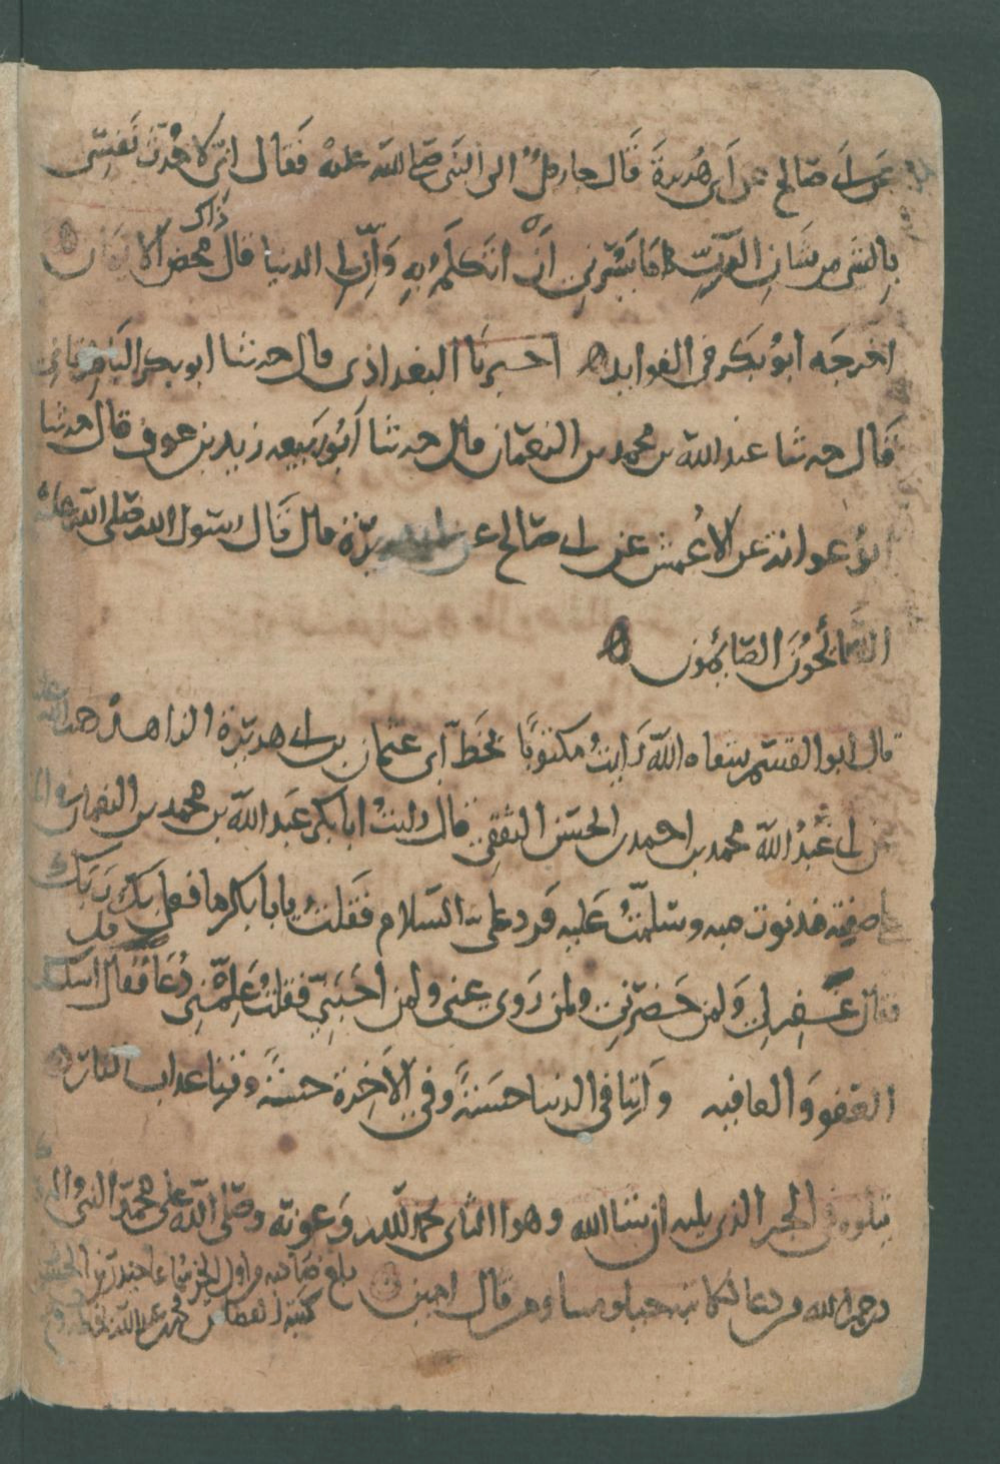 عن ابي صالح عن ابي هريرة قال جا رجل الى النبي صلى الله عليه فقال اني لاحدث نفسي
بالشي من شان الرب ما يسرني ان اتكلم به وان لي الدنيا قال ذاك محض الايمان
اخرجه ابو بكر في الفوايد اخبرنا البغداذي قال حدثنا ابو بكر
قال حدثنا عبد الله بن محمد بن النعمان قال حدثنا ابو ربيعه زيد بن عوف قال حدثنا
ابو عوانة عن الاعمش عن ابي صالح عن ابي هريرة قال قال رسول الله صلى الله عليه
السائحون الصائمون
قال ابو القسم رايت مكتوبا بخط ابي عثمان بن ابي هريرة الزاهد
ابي عبد الله محمد بن احمد بن الحسن الثقفي قال رايت ابا بكر عبد الله بن محمد بن النعمان
فدنوت منه وسلمت عليه فرد علي السلام فقلت يا با بكر ما فعل بك ربك
فقال غفر لي ولمن حضرني ولمن روى عني ولمن احبني فقلت علمني دعا فقال قل اسلك
العفو والعافيه واتنا في الدنيا حسنة وفي الاخرة حسنة وقنا عذاب النار
يتلوه في الجز الذي يليه ان شا الله وهو الثاني بحمد الله وعونه وصلى الله على محمد النبي واله
رحم الله من دعا لكاتبه ومن قال امين